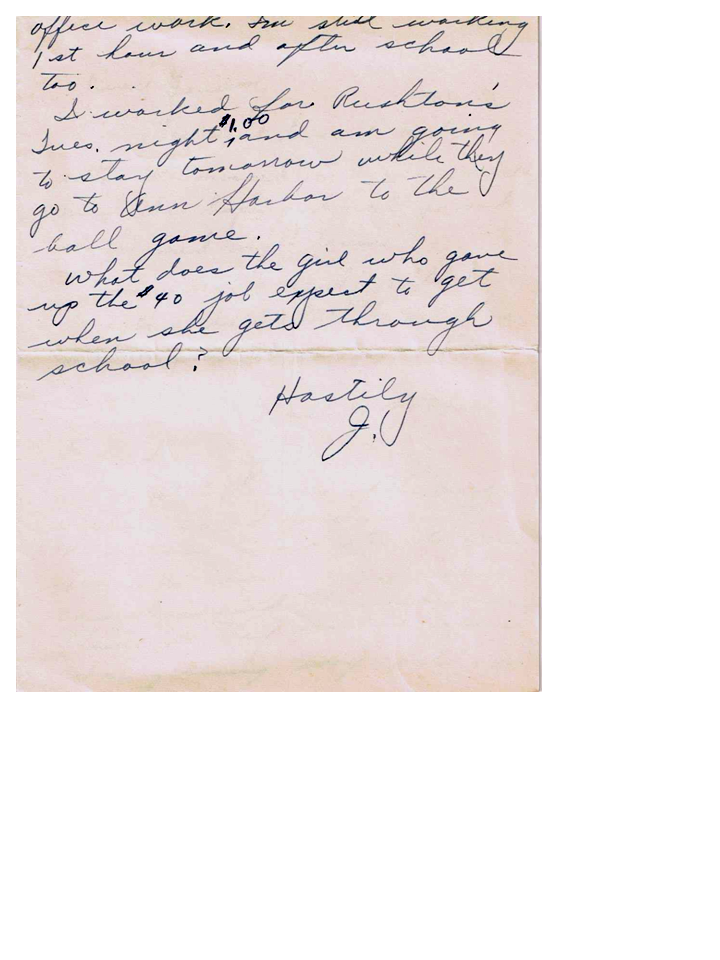 office work. I'm still working
1st hour and after school
too.
I worked for Rushton's
Tues. night, $1.00 and am going
to stay tomorrow while they
go to Ann Harbor to the
ball game.
What does the girl who gave
up the $40 job expect to get
when she gets through
school?
Hastily
J.